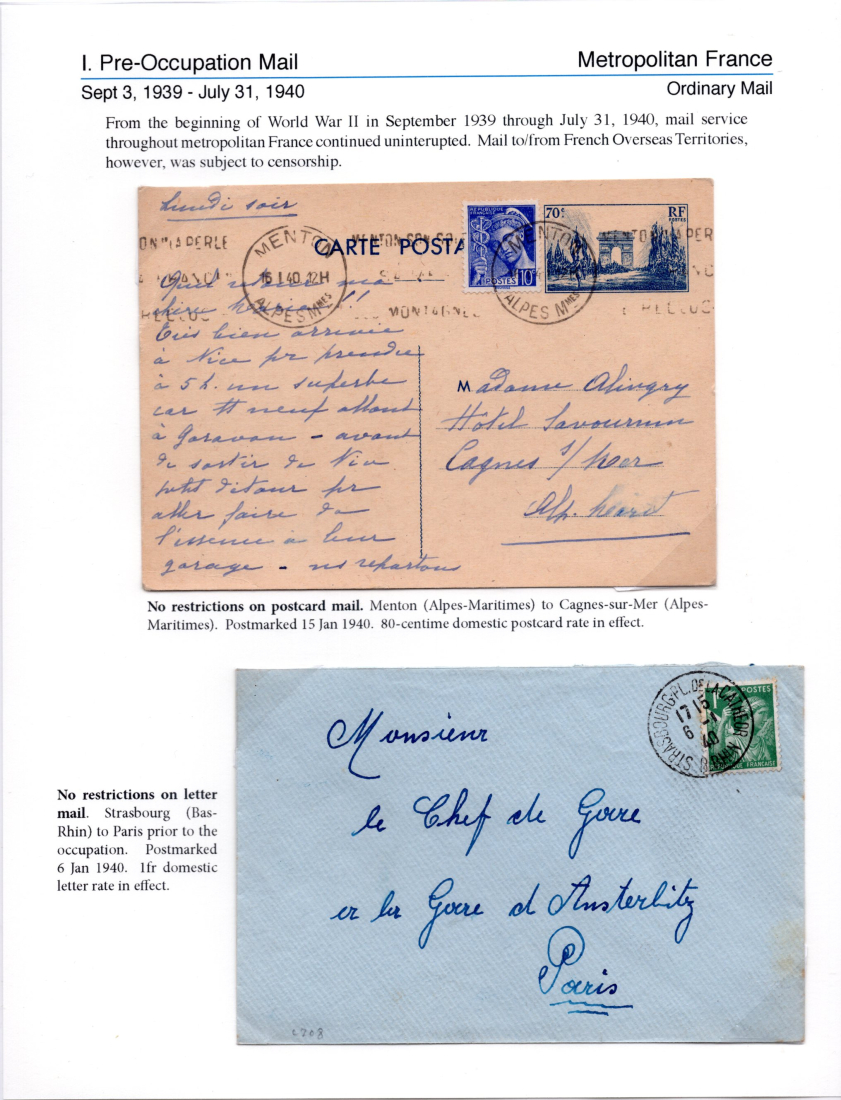 I. Pre-Occupation Mail
Metropolitan France
Sept 3, 1939 - July 31, 1940
Ordinary Mail
From the beginning of World War II in September 1939 through July 31, 1940, mail service
throughout metropolitan France continued uninterupted. Mail to/from French Overseas Territories,
however, was subject to censorship.
Lundi soir
CARTE POSTA
MENTON
15 1 40 12H
ALPES Mmes
MENTON
ALPES Mmes
LA PERLE
MONTAGNE
REPUBLIQUE FRANÇAISE
POSTES 10c
70c
RF
POSTES
!!
Très bien arrivée
à Nice pr prendre
à 5 h. un superbe
car tt neuf allant
à Garavan - avant
de sortir de Nice
petit détour pr
aller faire de
l'essence à leur
garage - ns repartons
Madame Alingry
Hôtel Savournin
Cagnes s/ Mer
Alp.
No restrictions on postcard mail. Menton (Alpes-Maritimes) to Cagnes-sur-Mer (Alpes-
Maritimes). Postmarked 15 Jan 1940. 80-centime domestic postcard rate in effect.
STRASBOURG-PL. DE LA CATHEDR
17 15
6 -1
40
B. RHIN
1F POSTES
FRANÇAISE
Monsieur
le Chef de Gare
de la Gare d'Austerlitz
Paris
2208
No restrictions on letter
mail. Strasbourg (Bas-
Rhin) to Paris prior to the
occupation. Postmarked
6 Jan 1940. 1fr domestic
letter rate in effect.